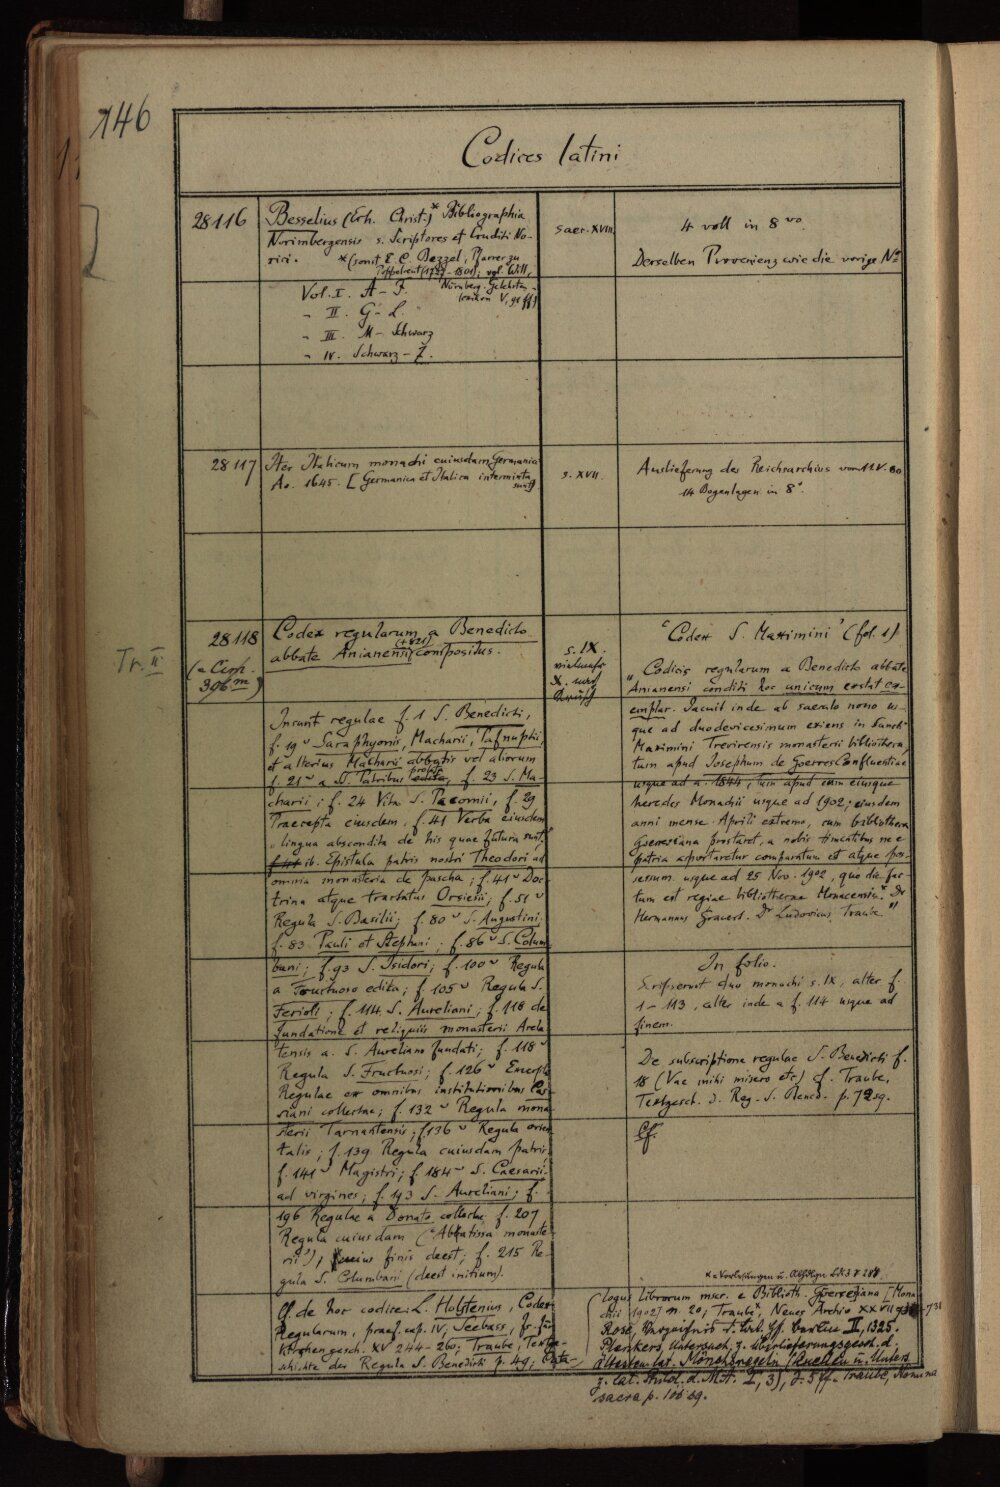 146
Codices latini
28116
Besselius (Joh. Christ.)* Bibliographia
Norimbergensis s. Scriptores et Eruditi No-
rici. *(sonst E. C. Bezzel, Pfarrer zu
Poppenreut (1727-1801); vgl. Will,
Nürnberg. Gelehrten-
lexikon V, 90 ff)
Vol. I. A - F.
" II. G - L.
" III. M - Schwarz
" IV. Schwarz - Z.
saec. XVIII
4 voll in 8vo.
Derselben Provenienz wie die vorige No
28117
Iter Italicum monachi cuiusdam Germania
Ao. 1645. [Germanica et Italica intermixta
sunt]
s. XVII.
Auslieferung des Reichsarchivs vom 11.V.
14 Bogenlagen in 8o.
Tr. II
28118
(= Cim.
396m)
Codex regularum a Benedicto
abbate Anianensi (+821) compositus.
s. IX.
vielmehr
X. nach
"Codex S. Maximini" (fol. 1)
"Codicis regularum a Benedicto abbate
Anianensi conditi hoc unicum exstat ex-
emplar. Iacuit inde ab saeculo nono us-
que ad duodevicesimum exiens in Sancti
Maximini Trevirensis monasterii bibliotheca,
tum apud Josephum de Goerres Confluentiae
usque ad a. 1844, tum apud eiusque
heredes Monachii usque ad 1902; eiusdem
anni mense Aprili extremo, cum bibliotheca
Goerresiana prostaret, a nobis timentibus ne e
patria asportaretur comparatum est atque pos-
sessum usque ad 25 Nov. 1902, quo die fac-
tum est regiae bibliothecae Monacensis. Dr
Hermannus Grauert. Dr Ludovicus Traube."
Insunt regulae f. 1 S. Benedicti,
f. 19v Saraphyonis, Macharii, Pafnuptii,
et alterius Macharii abbatis vel aliorum
f. 21v a SS Patribus prolata, f. 23 S. Ma-
charii; f. 24 Vita S. Pacomii, f. 29
Praecepta eiusdem; f. 41 Verba eiusdem
"lingua abscondita de his quae futura sunt,"
ib. Epistula patris nostri Theodori ad
omnia monasteria de pascha; f. 41v Doc-
trina atque tractatus Orsiesii; f. 51v
Regula S. Basilii; f. 80v S. Augustini;
f. 83 Pauli et Stephani; f. 86v S. Colum-
bani; f. 93 S. Isidori; f. 100v Regula
a Fructuoso edita; f. 105v Regula S.
Ferioli; f. 114 S. Aureliani; f. 118 de
fundatione et reliquiis monasterii Arela-
tensis a. S. Aureliano fundati; f. 118v
Regula S. Fructuosi; f. 126v Excerpta
Regulae ex omnibus institutionibus Cas-
siani collectae; f. 132v Regula mona-
sterii Tarnantensis; f. 136v Regula orien-
talis; f. 139 Regula cuiusdam patris;
f. 141v Magistri; f. 184v S. Caesarii
ad virgines; f. 193 S. Aureliani; f.
196 Regulae a Donato collectae f. 207
Regula cuiusdam ("Abbatissa monaste-
rii"), cuius finis deest; f. 215 Re-
gula S. Columbani (deest initium).
In folio.
Scripserunt duo monachi s. IX, alter f.
1-113, alter inde a f. 114 usque ad
finem.
De subscriptione regulae S. Benedicti f.
18 (Vae mihi misero etc) cf. Traube,
Textgesch. d. Reg. S. Bened. p. 72 sq.
Cf.
Cf. de hoc codice: L. Holstenius, Codex
Regularum, praef. cap. IV, Seebass, Zs. für
Kirchengesch. XV 244-260; Traube, Textge-
schichte der Regula S. Benedicti p. 49; Cata-
* = Vorlesungen u. Abhdlgn
logus librorum mscr. e Biblioth. Goerresiana [Mona-
chii 1902] n. 20; Traube*, Neues Archiv XXVII 731
Rose, Verzeichnis d. lat. Hss. Berlin II, 1325.
Plenkers Untersuch. z. Überlieferungsgesch. d.
ältesten lat. Mönchsregeln (Quellen u. Unters.
z. lat. Philol. d. M.A. I, 3), S. 5 ff. Traube, Nomina
sacra p. 106 sq.